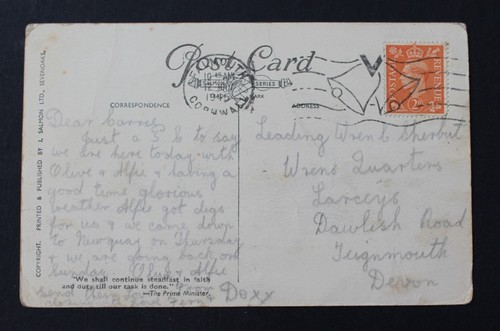 Post Card
FALMOUTH
10 45 AM
CORNWALL
SALMON
SERIES
TRADE MARK
REVENUE
2D
CORRESPONDENCE
ADDRESS
COPYRIGHT. PRINTED & PUBLISHED BY J. SALMON LTD., SEVENOAKS.
Dear Carrie
Just a P.C to say
we are here today with
Olive & Alfie & having a
good time glorious
weather Alfie got digs
for us & we came down
to Newquay on Thursday
& we are going back on
Sunday. Olive & Alfie
send their love
Fern & Dexx
"We shall continue steadfast in faith
and duty till our task is done."
—The Prime Minister.
Leading Wren E Sherbut
Wrens Quarters
Larceys
Dawlish Road
Teignmouth
Devon